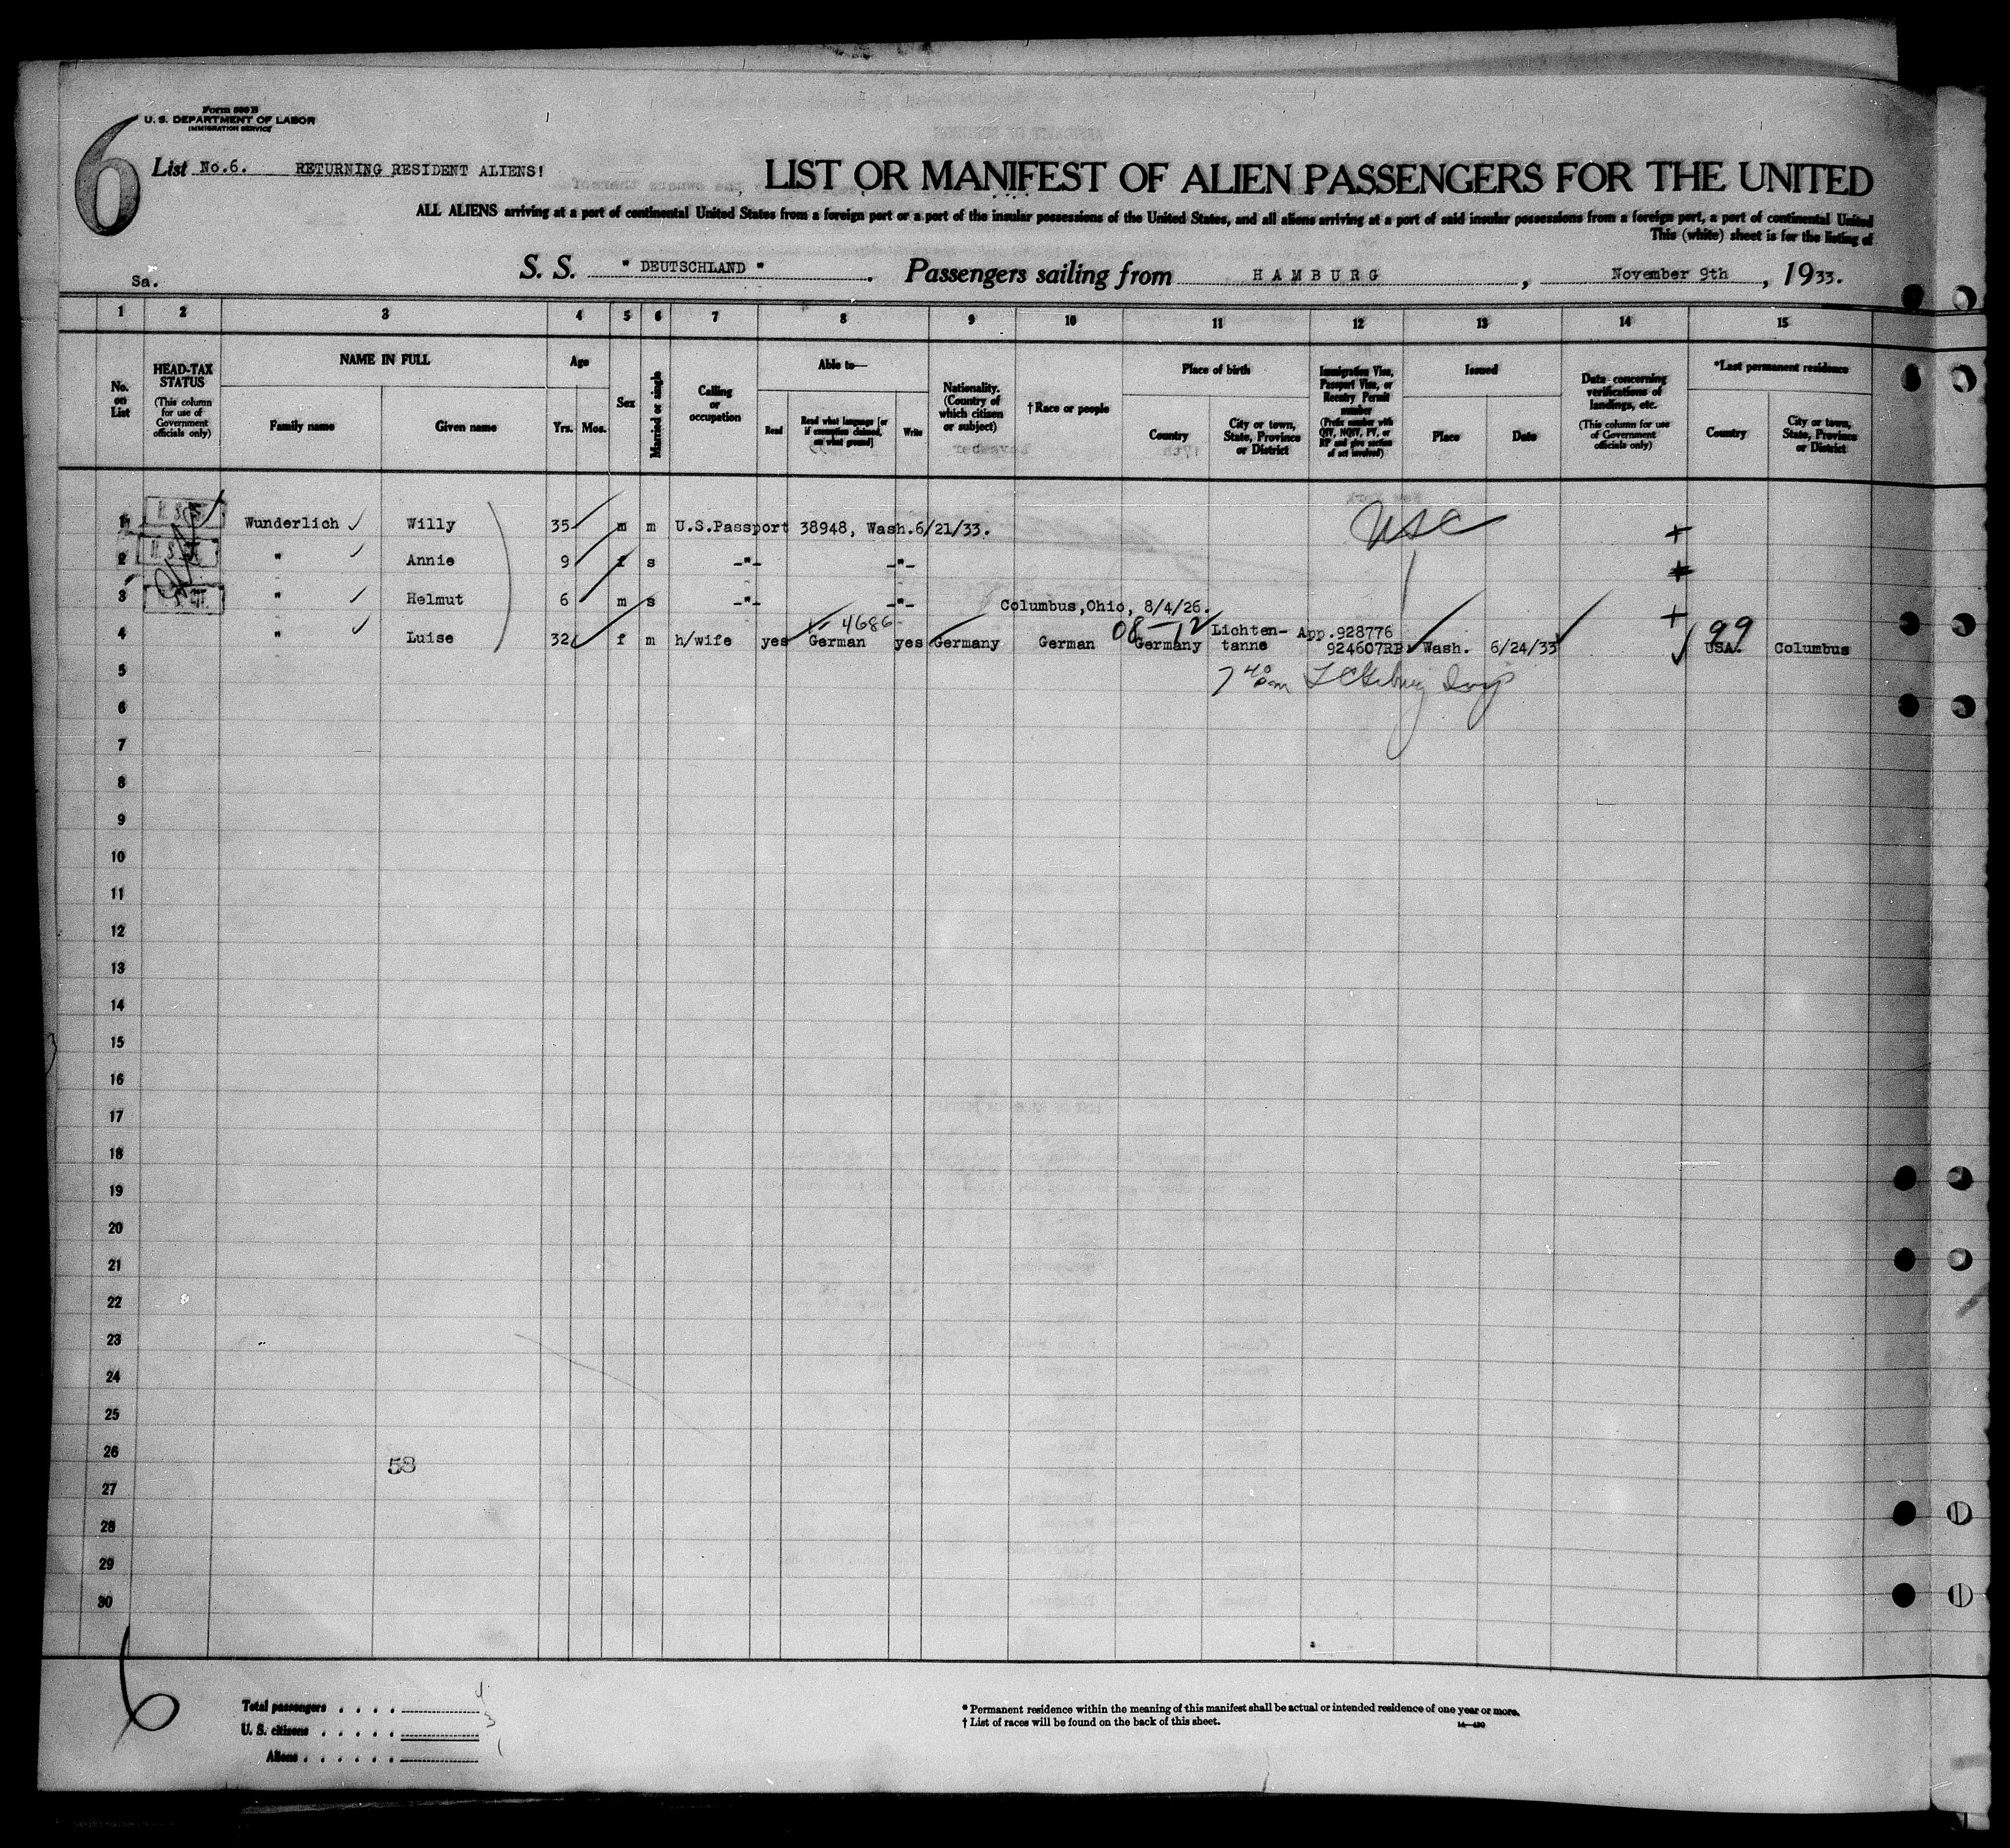 Form 500 B
U. S. DEPARTMENT OF LABOR
IMMIGRATION SERVICE
6
List No.6. RETURNING RESIDENT ALIENS!
LIST OR MANIFEST OF ALIEN PASSENGERS FOR THE UNITED
ALL ALIENS arriving at a port of continental United States from a foreign port or a port of the insular possessions of the United States, and all aliens arriving at a port of said insular possessions from a foreign port, a port of continental United
This (white) sheet is for the listing of
Sa.
S. S. " DEUTSCHLAND " . Passengers sailing from HAMBURG , November 9th , 1933.
1 2 3 4 5 6 7 8 9 10 11 12 13 14 15
No. on List
HEAD-TAX STATUS (This column for use of Government officials only)
NAME IN FULL
Family name
Given name
Age
Yrs. Mos.
Sex
Married or single
Calling or occupation
Able to—
Read
Read what language [or if exemption claimed, on what ground]
Write
Nationality. (Country of which citizen or subject)
†Race or people
Place of birth
Country
City or town, State, Province or District
Immigration Visa, Passport Visa, or Reentry Permit number (Prefix number with QIV, NQIV, PV, or RP and give section of act involved)
Issued
Place
Date
Data concerning verifications of landings, etc. (This column for use of Government officials only)
*Last permanent residence
Country
City or town, State, Province or District
1 Wunderlich Willy 35 m m U.S.Passport 38948, Wash.6/21/33. USC
2 " Annie 9 f s -"- -"-
3 " Helmut 6 m s -"- -"- Columbus,Ohio, 8/4/26.
4686
08 — 12
99
4 " Luise 32 f m h/wife yes German yes Germany German Germany Lichten-tanne App.928776 924607RP Wash. 6/24/33 USA. Columbus
5
7 40 pm
6
7
8
9
10
11
12
13
14
15
16
17
18
19
20
21
22
23
24
25
26
58
27
28
29
30
6
Total passengers . . . . 4
U. S. citizens . . . . . 3
Aliens . . . . . . 1
* Permanent residence within the meaning of this manifest shall be actual or intended residence of one year or more.
† List of races will be found on the back of this sheet.
14—430